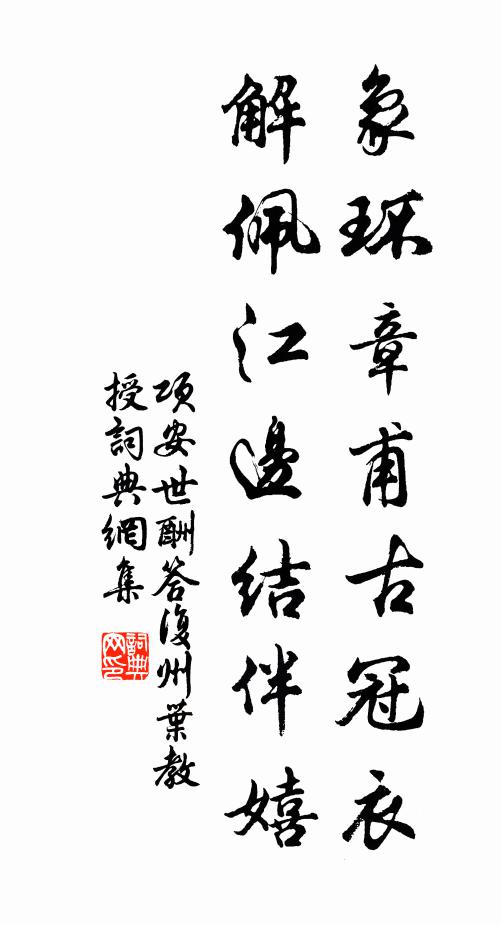 象环章甫古冠衣
解佩江邊结伴嬉
项安世酬答復州葉教
授詞典網集
詞典
网印